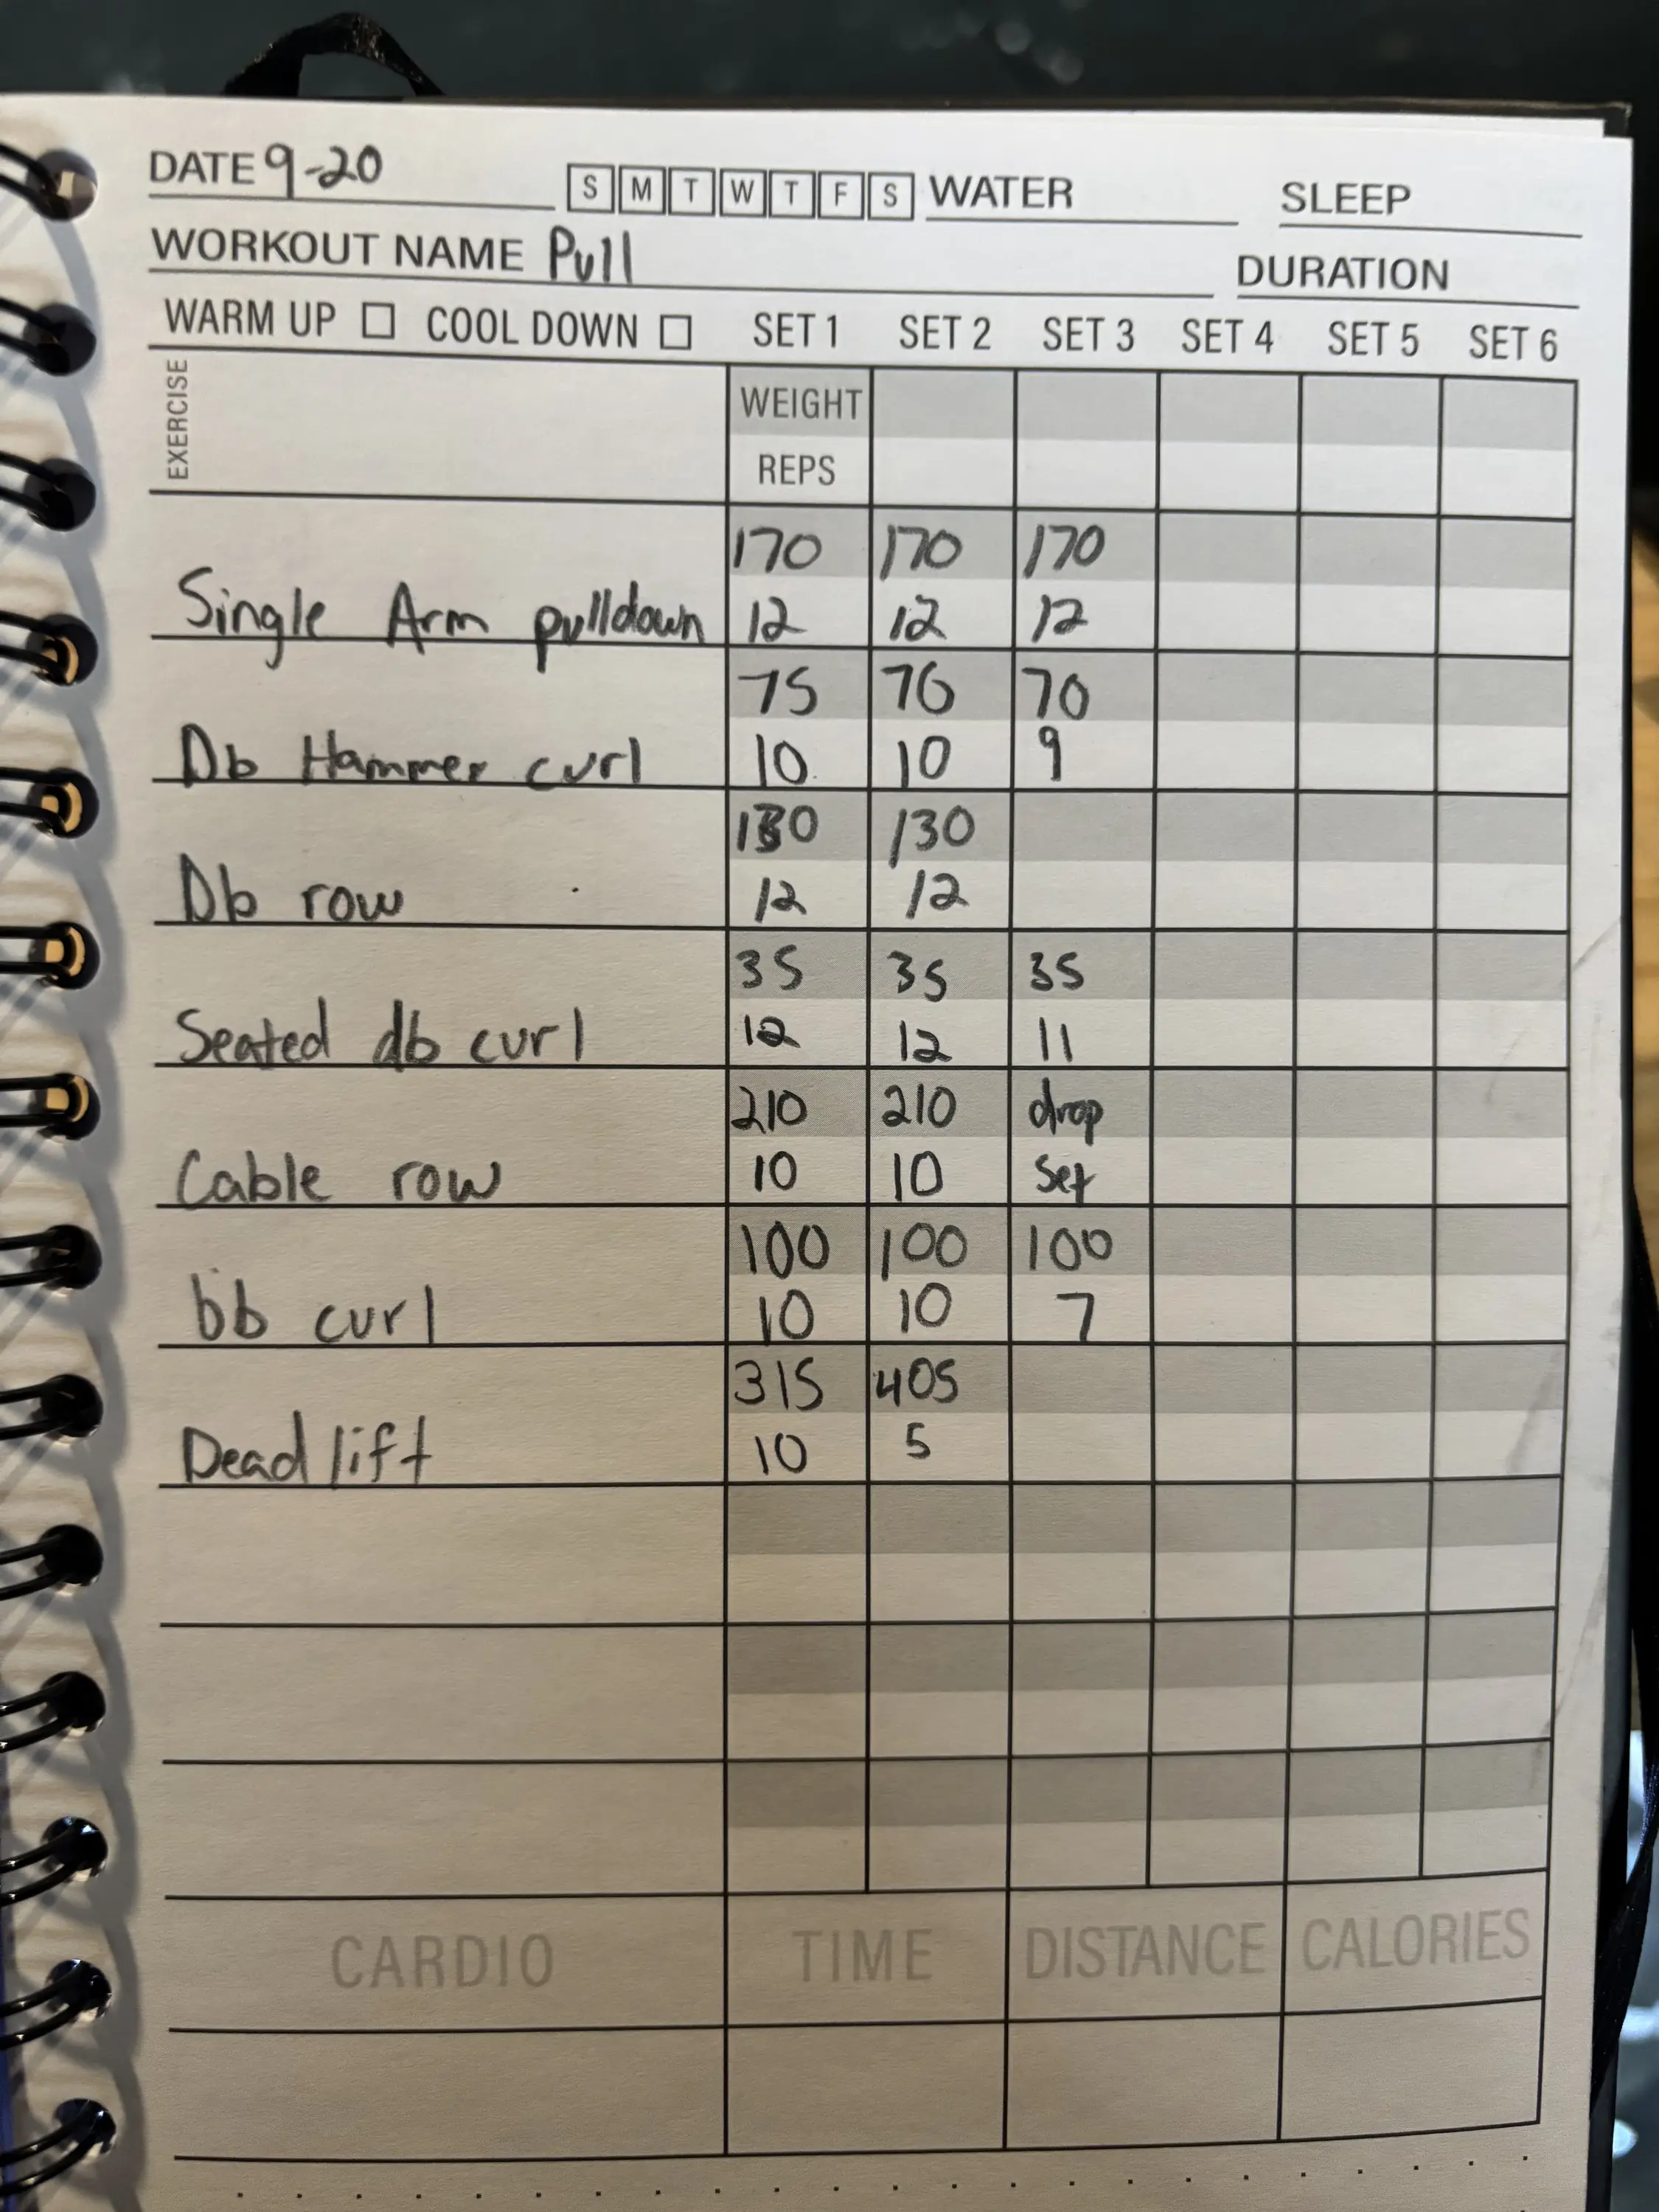 DATE 9-20 S M T W T F S WATER SLEEP
WORKOUT NAME Pull DURATION
WARM UP COOL DOWN SET 1 SET 2 SET 3 SET 4 SET 5 SET 6
EXERCISE WEIGHT
REPS
170 170 170
Single Arm pulldown 12 12 12
75 70 70
Db Hammer curl 10 10 9
130 130
Db row 12 12
35 35 35
Seated db curl 12 12 11
210 210 drop
Cable row 10 10 set
100 100 100
bb curl 10 10 7
315 405
Dead lift 10 5
CARDIO TIME DISTANCE CALORIES